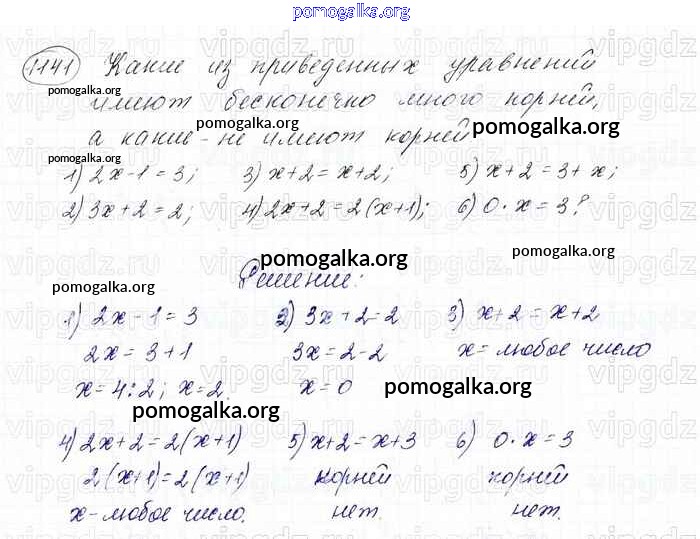 pomogalka.org
1141 Какие из приведенных уравнений
pomogalka.org
имеют бесконечно много корней,
pomogalka.org
а какие - не имеют корней
pomogalka.org
pomogalka.org
1) 2x-1=3; 3) x+2=x+2; 5) x+2=3+x;
2) 3x+2=2; 4) 2x+2=2(x+1); 6) 0·x=3?
pomogalka.org
pomogalka.org
Решение:
pomogalka.org
1) 2x-1=3 2) 3x+2=2 3) x+2=x+2
2x=3+1 3x=2-2 x=любое число
x=4:2; x=2 x=0
pomogalka.org
pomogalka.org
4) 2x+2=2(x+1) 5) x+2=x+3 6) 0·x=3
2(x+1)=2(x+1) корней корней
x-любое число. нет. нет.